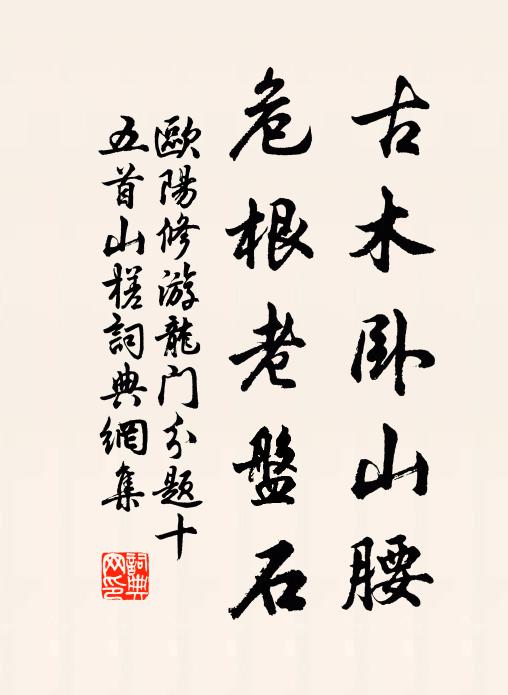 古木卧山腰
危根老盤石
歐陽修游龍门分题十
五首山槎詞典網集
詞典
网印